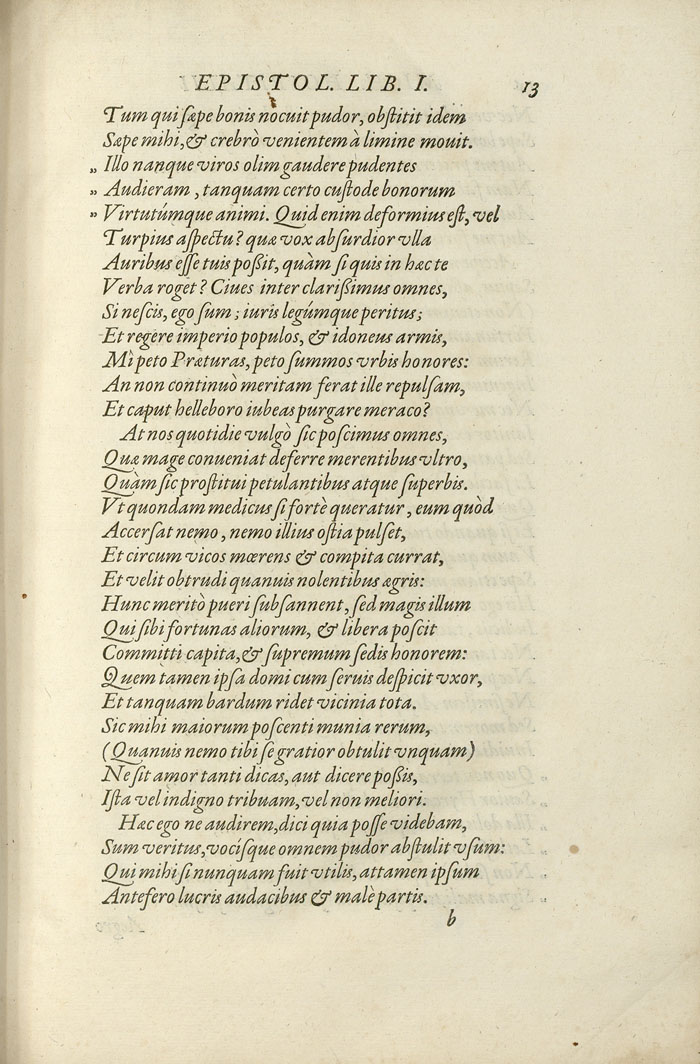 EPISTOL. LIB. I. 13
Tum qui sæpe bonis nocuit pudor, obstitit idem
Sæpe mihi, & crebrò venientem à limine mouit.
„ Illo nanque viros olim gaudere pudentes
„ Audieram, tanquam certo custode bonorum
„ Virtutúmque animi. Quid enim deformius est, vel
Turpius aspectu? quæ vox absurdior vlla
Auribus esse tuis poßit, quàm si quis in hæc te
Verba roget? Ciues inter clarißimus omnes,
Si nescis, ego sum; iuris legúmque peritus;
Et regere imperio populos, & idoneus armis,
Mì peto Præturas, peto summos vrbis honores:
An non continuò meritam ferat ille repulsam,
Et caput helleboro iubeas purgare meraco?
At nos quotidie vulgò sic poscimus omnes,
Quæ mage conueniat deferre merentibus vltro,
Quàm sic prostitui petulantibus atque superbis.
Vt quondam medicus si fortè queratur, eum quòd
Accersat nemo, nemo illius ostia pulset,
Et circum vicos mœrens & compita currat,
Et velit obtrudi quanuis nolentibus ægris:
Hunc meritò pueri subsannent, sed magis illum
Qui sibi fortunas aliorum, & libera poscit
Committi capita, & supremum sedis honorem:
Quem tamen ipsa domi cum seruis despicit vxor,
Et tanquam bardum ridet vicinia tota.
Sic mihi maiorum poscenti munia rerum,
(Quanuis nemo tibi se gratior obtulit vnquam)
Ne sit amor tanti dicas, aut dicere poßis,
Ista vel indigno tribuam, vel non meliori.
Hæc ego ne audirem, dici quia posse videbam,
Sum veritus, vocísque omnem pudor abstulit vsum:
Qui mihi si nunquam fuit vtilis, attamen ipsum
Antefero lucris audacibus & malè partis.
b